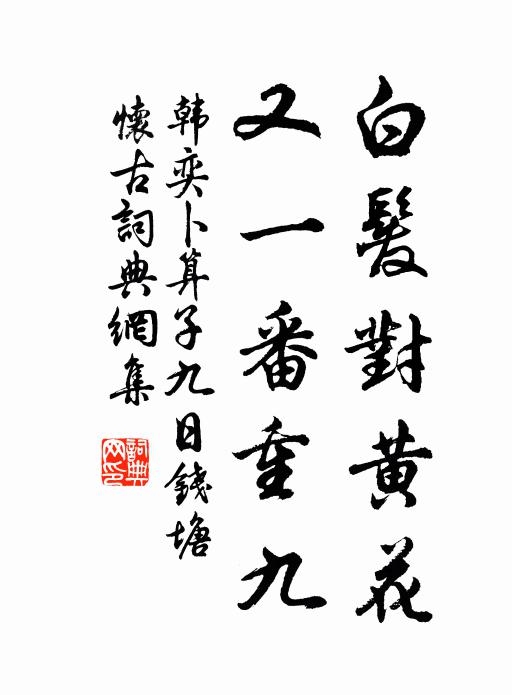 白髮對黃花
又一番重九
韩奕卜算子九日錢塘
懷古詞典網集
詞典
网印